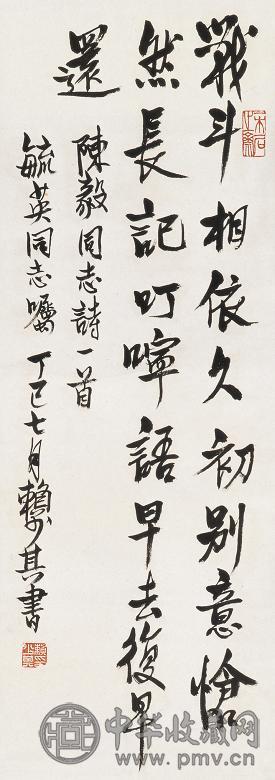 戰斗相依久初别意愴
然長記叮嚀語早去復早
還
陳毅同志詩一首
毓英同志囑 丁巳七月賴少其書
中华收藏网
www.pmv.cn